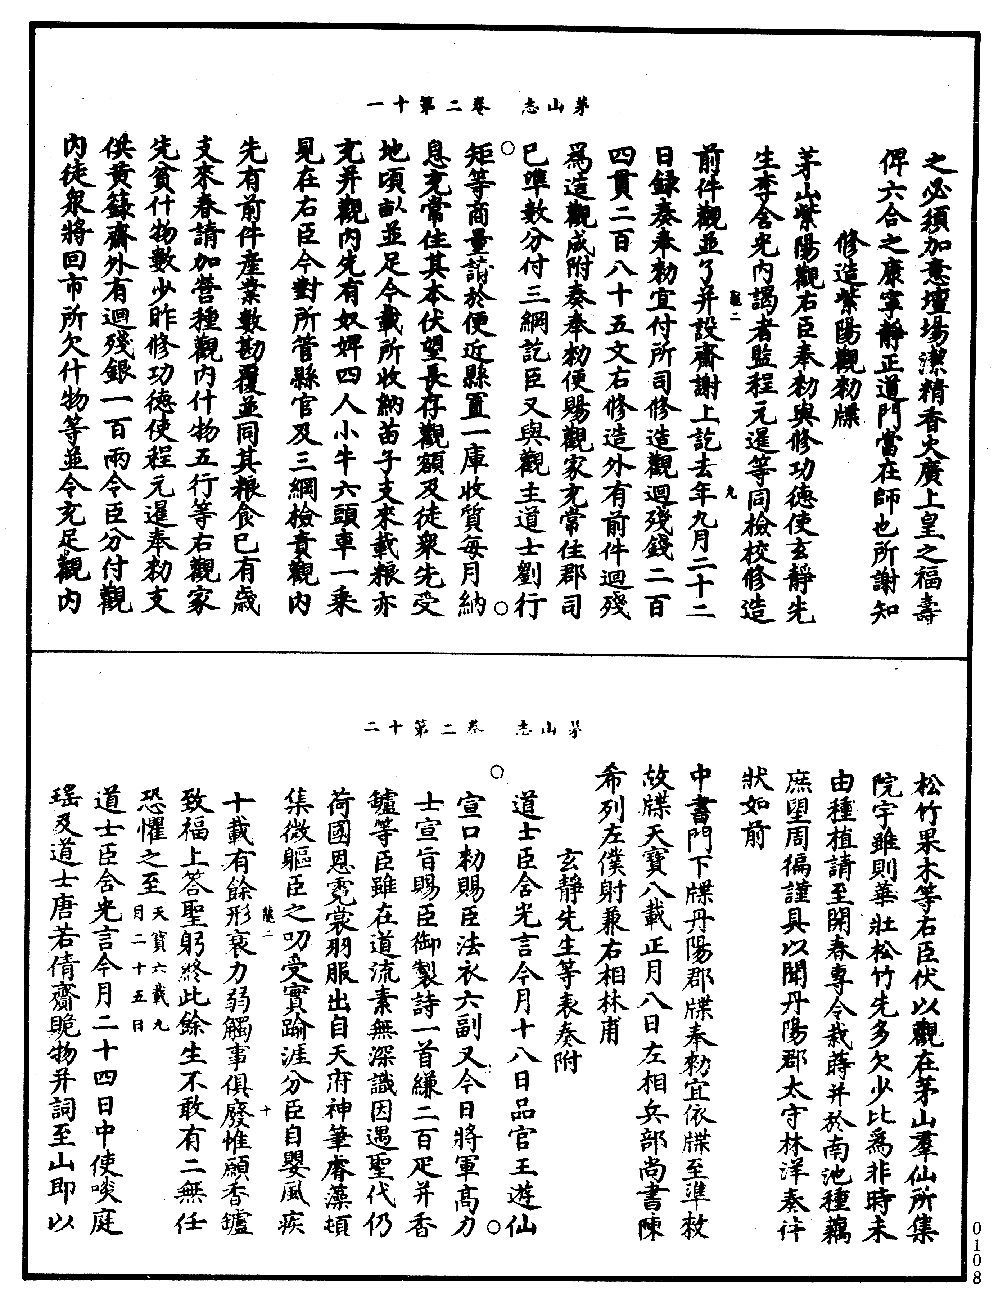 茅山志　卷二第十一
之必須加意壇場潔精香火廣上皇之福壽
俾六合之康寧靜正道門當在師也所謝知
修造紫陽觀勑牒
茅山紫陽觀右臣奉勑與修功德使玄靜先
生李含光內謁者監程元暹等同檢校修造
龍二
九
前件觀並了并設齋謝上訖去年九月二十二
日錄奏奉勑宜付所司修造觀迴殘錢二百
四貫二百八十五文右修造外有前件迴殘
為造觀成附奏奉勑便賜觀家充常住郡司
已準數分付三綱訖臣又與觀主道士劉行
矩等商量請於便近縣置一庫收質每月納
息充常住其本伏望長存觀額及徒衆先受
地頃畝並足今載所收納苗子支來載粮亦
充并觀內先有奴婢四人小牛六頭車一乘
見在右臣今對所管縣官及三綱檢責觀內
先有前件產業數勘覆並同其粮食已有歲
支來春請加營種觀內什物五行等右觀家
先貧什物數少昨修功德使程元暹奉勑支
供黃籙齋外有迴殘銀一百兩令臣分付觀
內徒衆將回市所欠什物等並令充足觀內
茅山志　卷二第十二
松竹果木等右臣伏以觀在茅山羣仙所集
院宇雖則華壯松竹先多欠少比為非時未
由種植請至開春專令栽蒔并於南池種藕
庶望周徧謹具以聞丹陽郡太守林洋奏件
狀如前
中書門下牒丹陽郡牒奉勑宜依牒至準敕
故牒天寶八載正月八日左相兵部尚書陳
希列左僕射兼右相林甫
玄靜先生等表奏附
道士臣含光言今月十八日品官王遊仙
宣口勑賜臣法衣六副又今日將軍高力
士宣旨賜臣御製詩一首縑二百疋并香
鑪等臣雖在道流素無深識因遇聖代仍
荷國恩霓裳羽服出自天府神筆睿藻頓
集微軀臣之叨受實踰涯分臣自嬰風疾
龍二
十
十載有餘形衰力弱觸事俱廢惟願香鑪
致福上答聖躬終此餘生不敢有二無任
恐懼之至天寶六載九月二十五日
道士臣含光言今月二十四日中使啖庭
瑤及道士唐若倩齎賜物并詞至山即以
0108